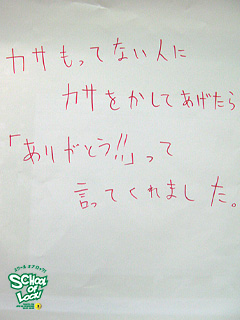 カサもってない人に
カサをかしてあげたら
「ありがとう!!」って
言ってくれました。
SCHOOL
OF
LOCK!